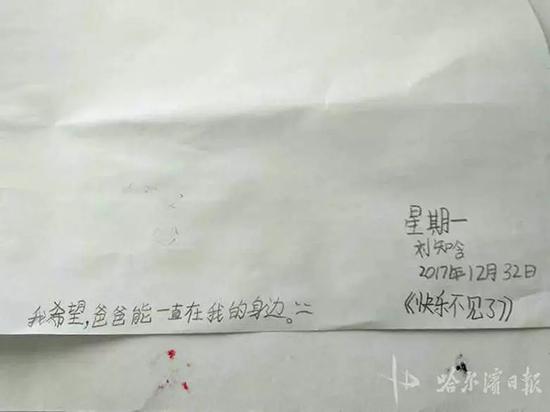 星期一
刘知含
2017年12月32日
《快乐不见了》
我希望,爸爸能一直在我的身边。
哈尔滨日报